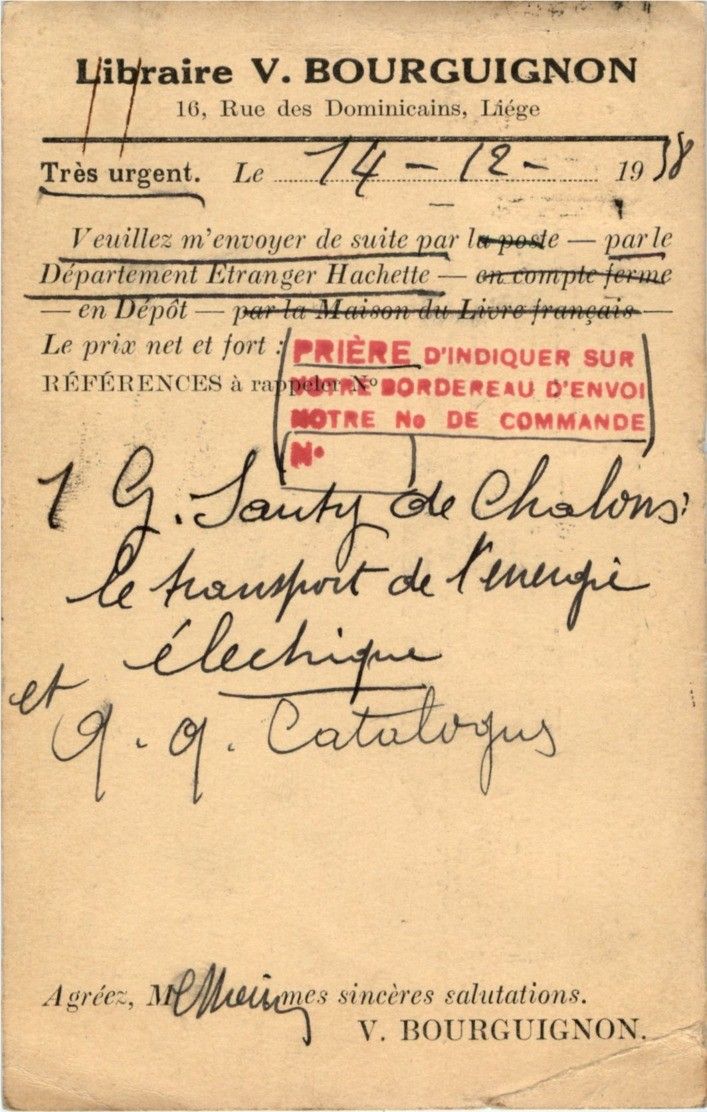 Libraire V. BOURGUIGNON
16, Rue des Dominicains, Liége
Très urgent. Le 14-12-1938
Veuillez m'envoyer de suite par la poste — par le
Département Etranger Hachette — en compte ferme
— en Dépôt — par la Maison du Livre français —
Le prix net et fort :
RÉFÉRENCES à rappeler No
PRIÈRE D'INDIQUER SUR
NOTRE BORDEREAU D'ENVOI
NOTRE No DE COMMANDE
No
1 G. Sauty de Chalons:
le transport de l'énergie
électrique
et
q. q. Catalogus
Agréez, mes sincères salutations.
V. BOURGUIGNON.